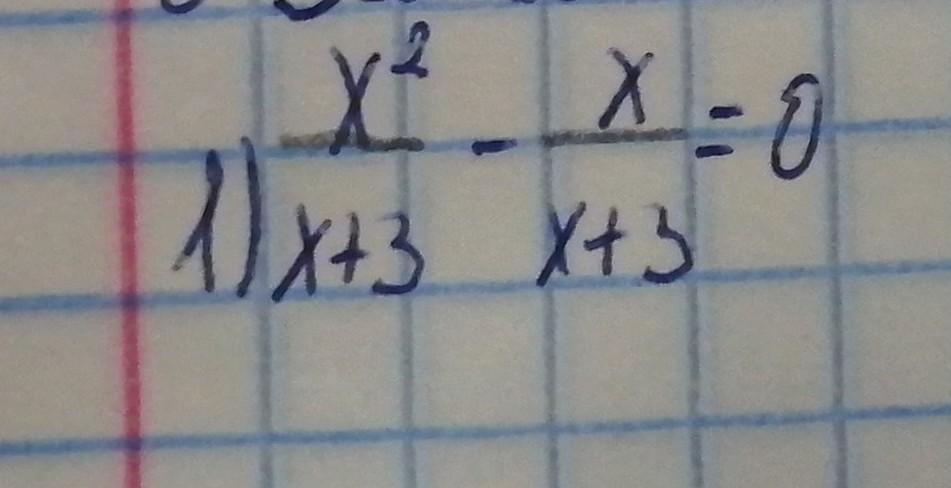 1) x²/(x+3) - x/(x+3) = 0